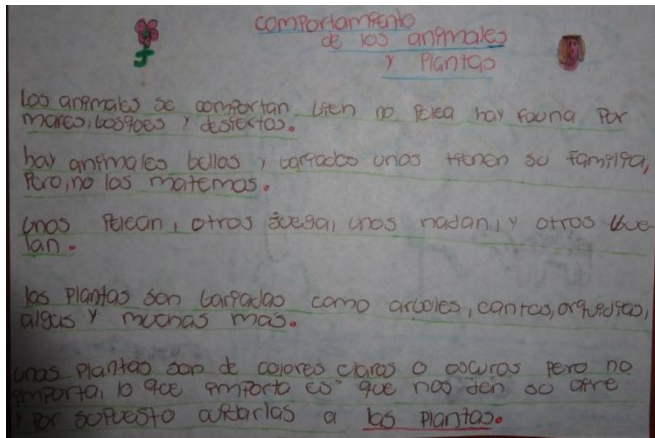 comportamiento
de los animales
y Plantas
los animales se comportan bien no Pelea hay fauna Por
mares, bosques y desiertos.
hay animales bellos, variados unos tienen su familia,
Pero, no los matemos.
unos Pelean, otros juega, unos nadan, y otros bue
lan.
las Plantas son bariadas como arboles, cantos, orquidias,
algas y muchas mas.
unas Plantas son de colores claros o oscuros Pero no
importa, lo que importa es que nos den su aire
y Por suPuesto cuidarlas a las Plantas.